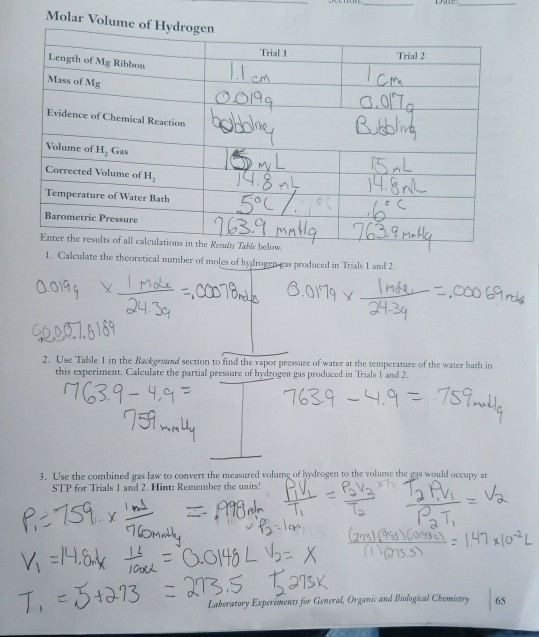 Molar Volume of Hydrogen
Trial 1 Trial 2
Length of Mg Ribbon 1.1 cm 1 cm
Mass of Mg 0.019g 0.017g
Evidence of Chemical Reaction bobbling Bubbling
Volume of H₂ Gas 15 mL 15 mL
Corrected Volume of H₂ 14.8 mL 14.8 mL
Temperature of Water Bath .5°C .6°C
Barometric Pressure 763.9 mmHg 763.9 mmHg
Enter the results of all calculations in the Results Table below.
1. Calculate the theoretical number of moles of hydrogen gas produced in Trials 1 and 2.
0.019g x 1 mole = .00078 moles 0.017g x 1 mole = .00069 moles
24.3g 24.3g
2. Use Table 1 in the Background section to find the vapor pressure of water at the temperature of the water bath in
this experiment. Calculate the partial pressure of hydrogen gas produced in Trials 1 and 2.
763.9 - 4.9 = 763.9 - 4.9 = 759 mmHg
759 mmHg
3. Use the combined gas law to convert the measured volume of hydrogen to the volume the gas would occupy at
STP for Trials 1 and 2. Hint: Remember the units!
P₁V₁ = P₂V₂ T₂P₁V₁ = V₂
T₁ T₂ P₂T₁
P₁ = 759 x 1 atm = .998 atm
760 mmHg
V₁ = 14.8 mL 1L = 0.0148 L V₂ = X
1000
= 1.47 x 10⁻² L
T₁ = .5 + 273 = 273.5 T₂ 273K
Laboratory Experiments for General, Organic and Biological Chemistry 65